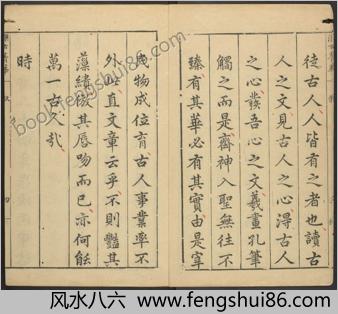 徒古人人皆有之者也讀古
人之文見古人之心淂古人
之心發吾心之文羲畫孔筆
觸之而是齋神入聖無往不
臻有其華必有其實由是宰
幾物成位育古人事業率不
外此直文章云乎不則豔其
藻繢倣其唇吻而已亦何能
萬一古人哉
時
bookfengshui86.com
风水八六 www.fengshui86.com